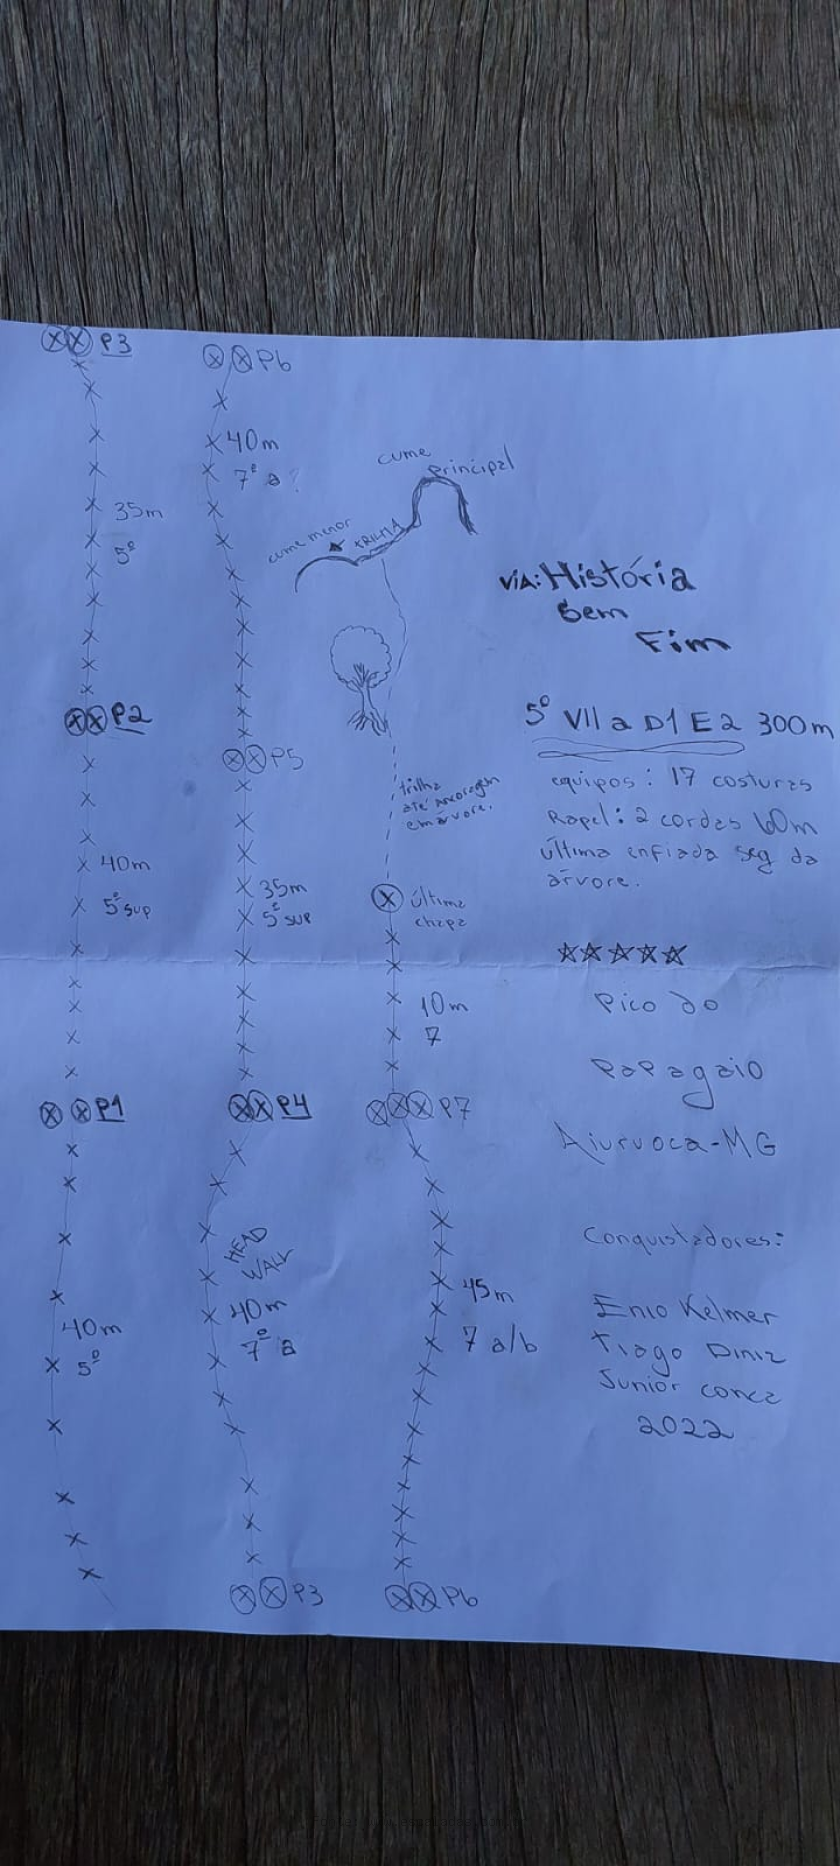 P3
35m
5º
P2
40m
5º sup
P1
40m
5º
P6
40m
7º a?
P5
35m
5º sup
P4
HEAD
WALL
40m
7º a
P3
cume
principal
cume menor
TRILHA
trilha
até ancoragem
em árvore.
última
chapa
10m
7
P7
45m
7 a/b
P6
VIA: História
Sem
Fim
5º VII a D1 E2 300m
equipos: 17 costuras
Rapel: 2 cordas 60m
última enfiada seg da
árvore.
☆☆☆☆☆
Pico do
Papagaio
Aiuruoca-MG
Conquistadores:
Enio Kelmer
Tiago Diniz
Junior
2022